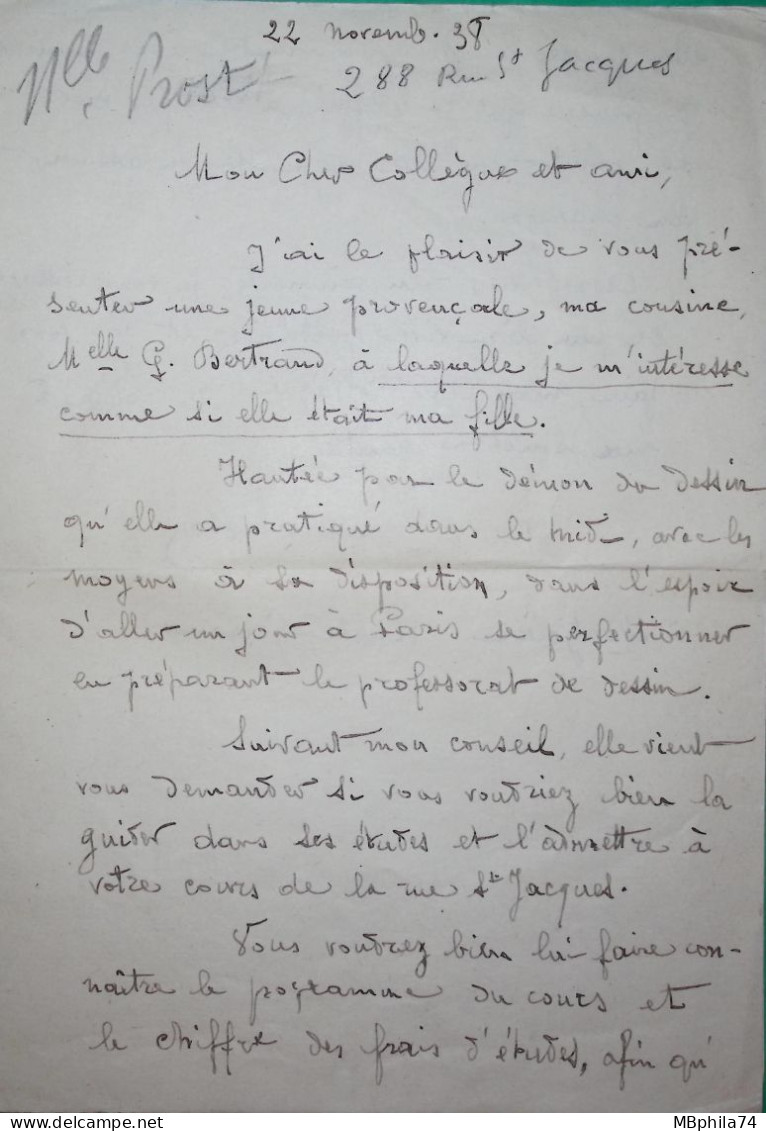 22 novemb. 38
Mlle Prost 288 Rue St Jacques
Mon Cher Collègue et ami,
J'ai le plaisir de vous pré-
senter une jeune provençale, ma cousine,
Melle G. Bertrand, à laquelle je m'intéresse
comme si elle était ma fille.
Hantée par le démon du dessin
qu'elle a pratiqué dans le midi, avec les
moyens à sa disposition, dans l'espoir
d'aller un jour à Paris se perfectionner
en préparant le professorat de dessin.
Suivant mon conseil, elle vient
vous demander si vous voudriez bien la
guider dans ses études et l'admettre à
votre cours de la rue St Jacques.
Vous voudrez bien lui faire con-
naître le programme du cours et
le chiffre des frais d'études, afin qu'
MBphila74